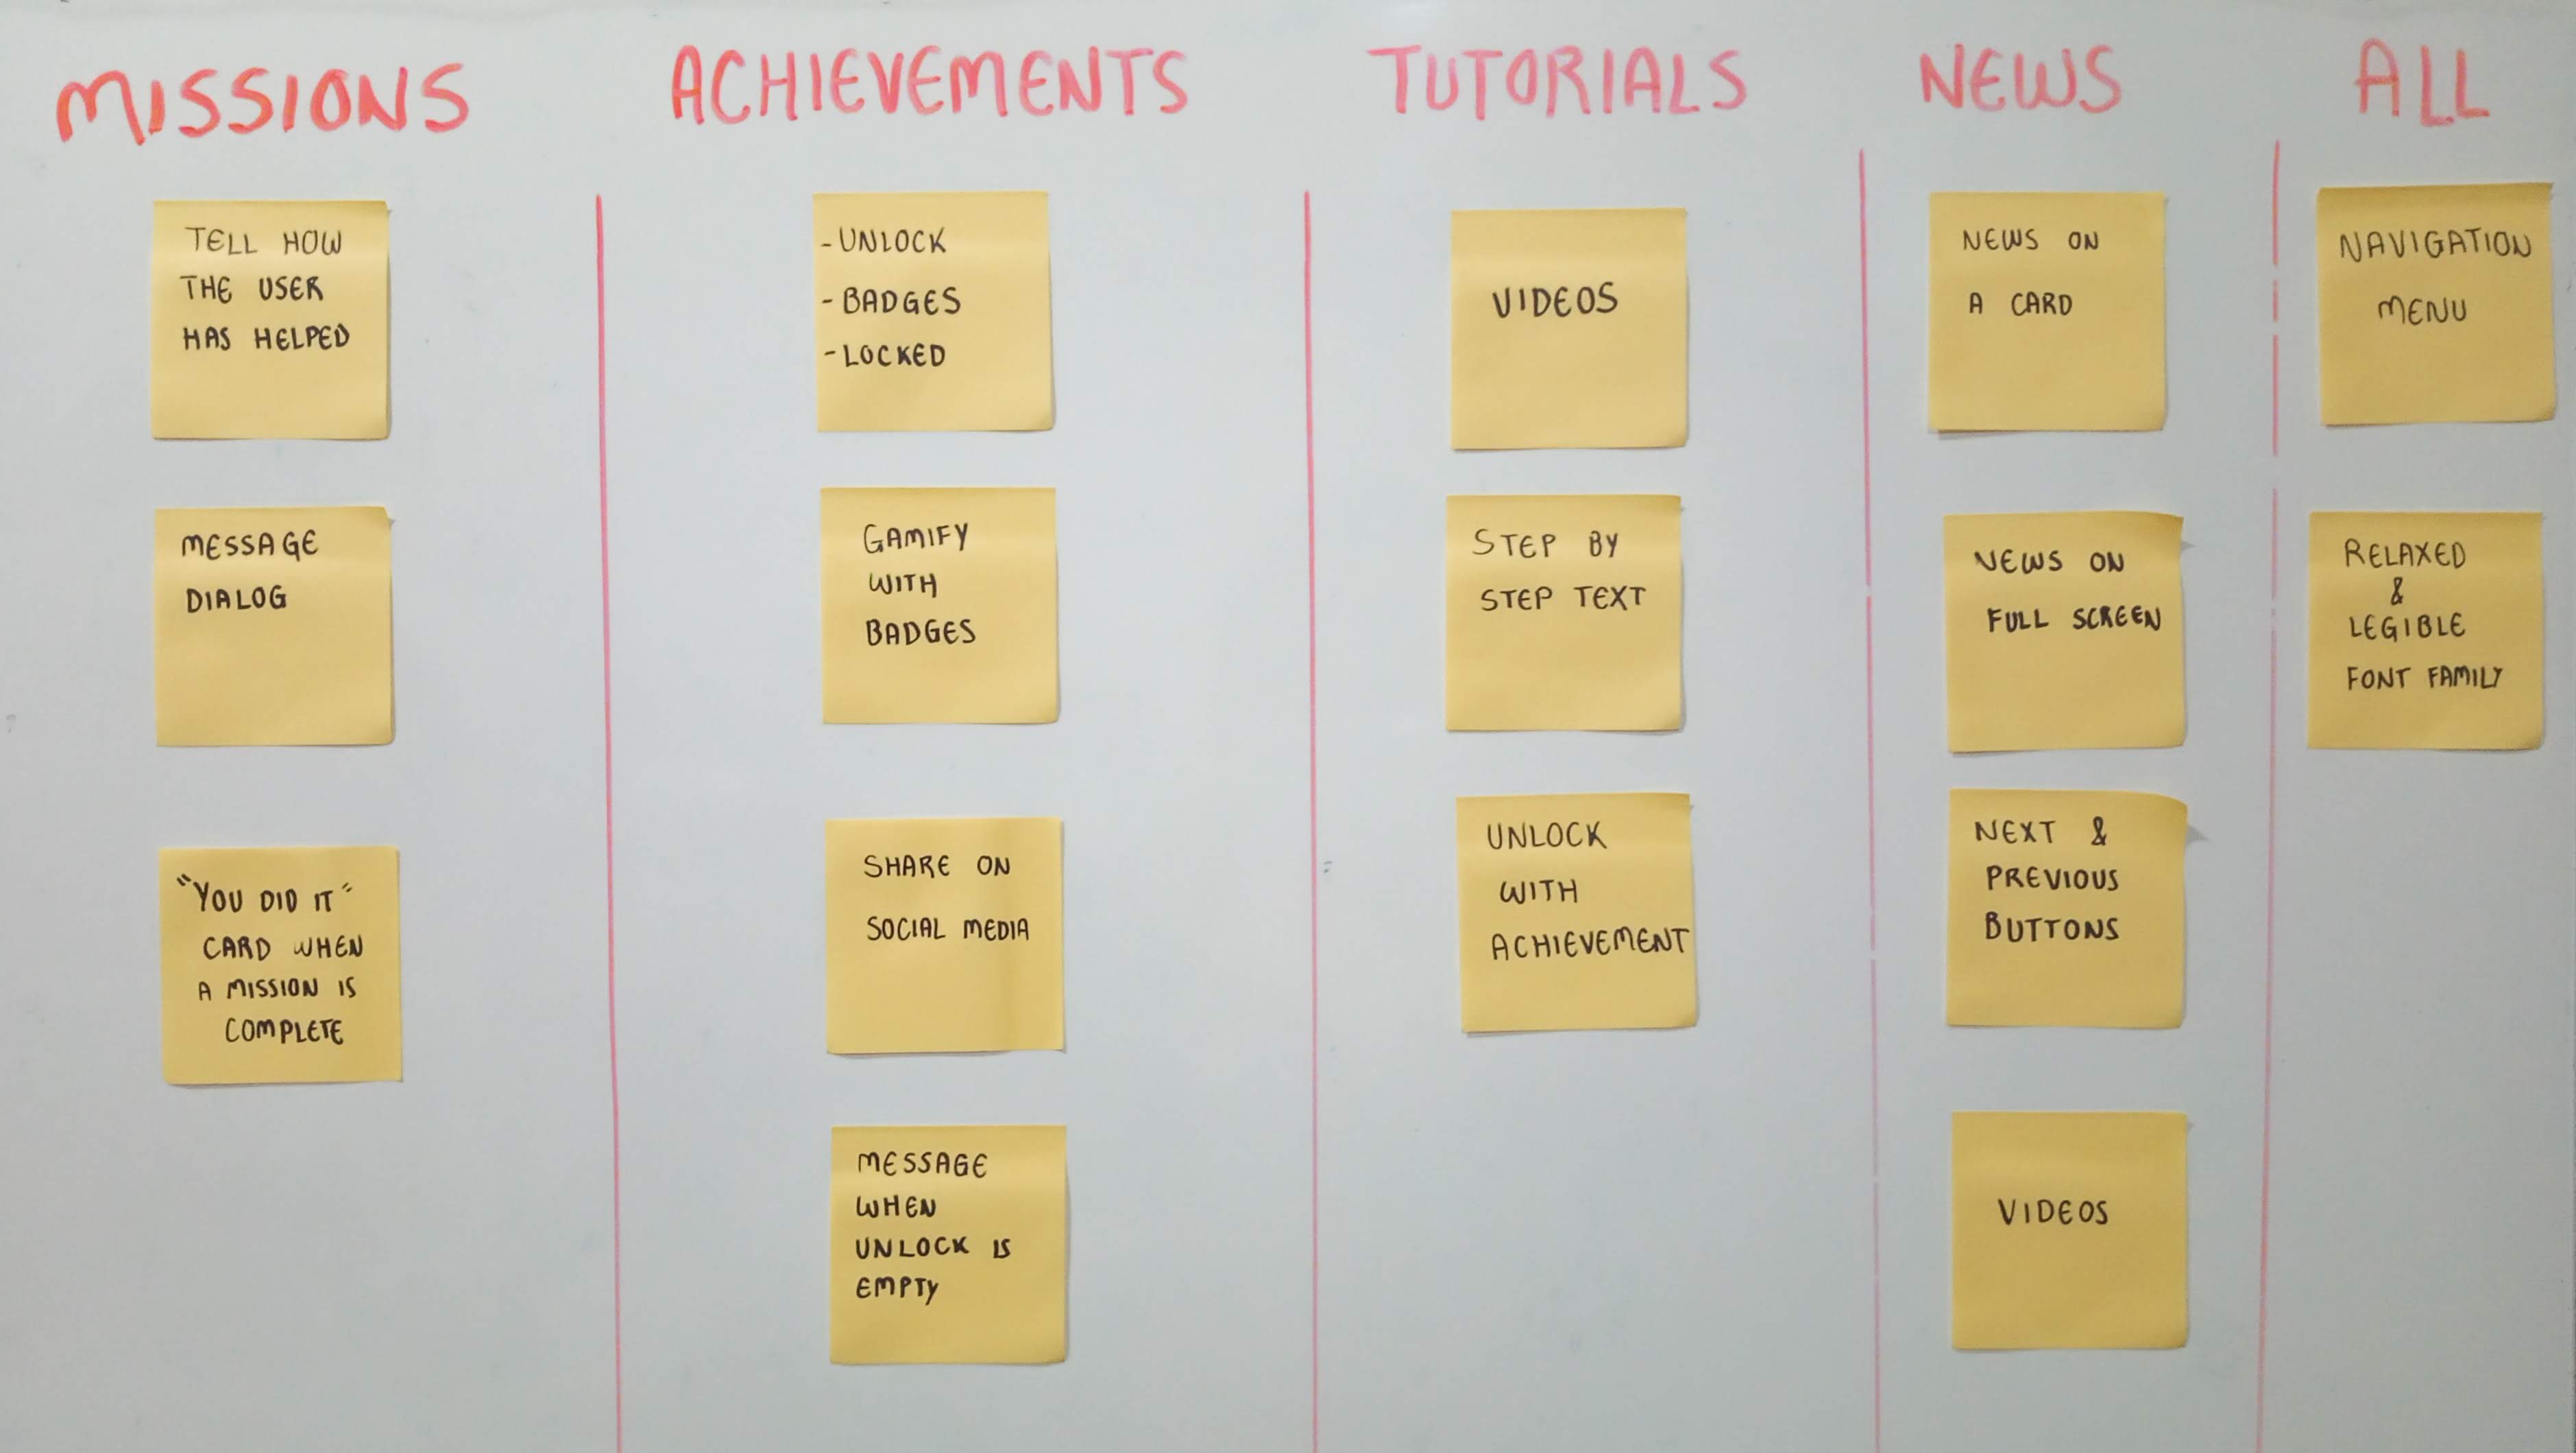 MISSIONS
TELL HOW
THE USER
HAS HELPED
MESSAGE
DIALOG
"YOU DID IT"
CARD WHEN
A MISSION IS
COMPLETE
ACHIEVEMENTS
- UNLOCK
- BADGES
- LOCKED
GAMIFY
WITH
BADGES
SHARE ON
SOCIAL MEDIA
MESSAGE
WHEN
UNLOCK IS
EMPTY
TUTORIALS
VIDEOS
STEP BY
STEP TEXT
UNLOCK
WITH
ACHIEVEMENT
NEWS
NEWS ON
A CARD
NEWS ON
FULL SCREEN
NEXT &
PREVIOUS
BUTTONS
VIDEOS
ALL
NAVIGATION
MENU
RELAXED
&
LEGIBLE
FONT FAMILY